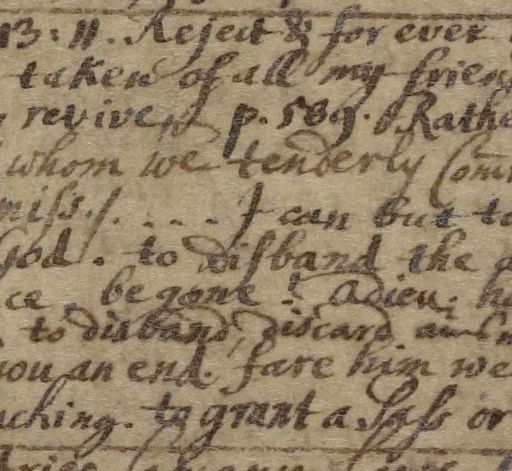 13: 11. Reject & for ever
taken of all my frien
revive, p. 589. Rathe
whom we tenderly Com
miss./. . . . . I can but to
God. to disband the
ce, be gone! adieu;
to disband, discard
you an end. fare him we
aching. to grant a Pass or